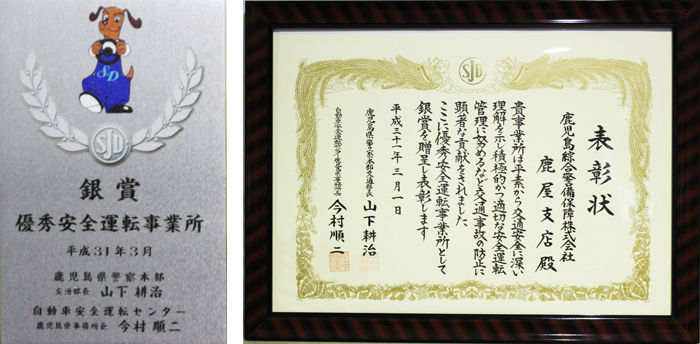 SD
SJD
銀賞
優秀安全運転事業所
平成31年3月
鹿児島県警察本部
交通部長 山下耕治
自動車安全運転センター
鹿児島県事務所長 今村順二
SJD
表彰状
鹿児島綜合警備保障株式会社
鹿屋支店殿
貴事業所は平素から交通安全に深い
理解を示し積極的かつ適切な安全運転
管理に努めるなど交通事故の防止に
顕著な貢献をされました
ここに優秀安全運転事業所として
銀賞を贈呈し表彰します
平成三十一年三月一日
鹿児島県警察本部交通部長 山下耕治
自動車安全運転センター鹿児島県事務所長 今村順二